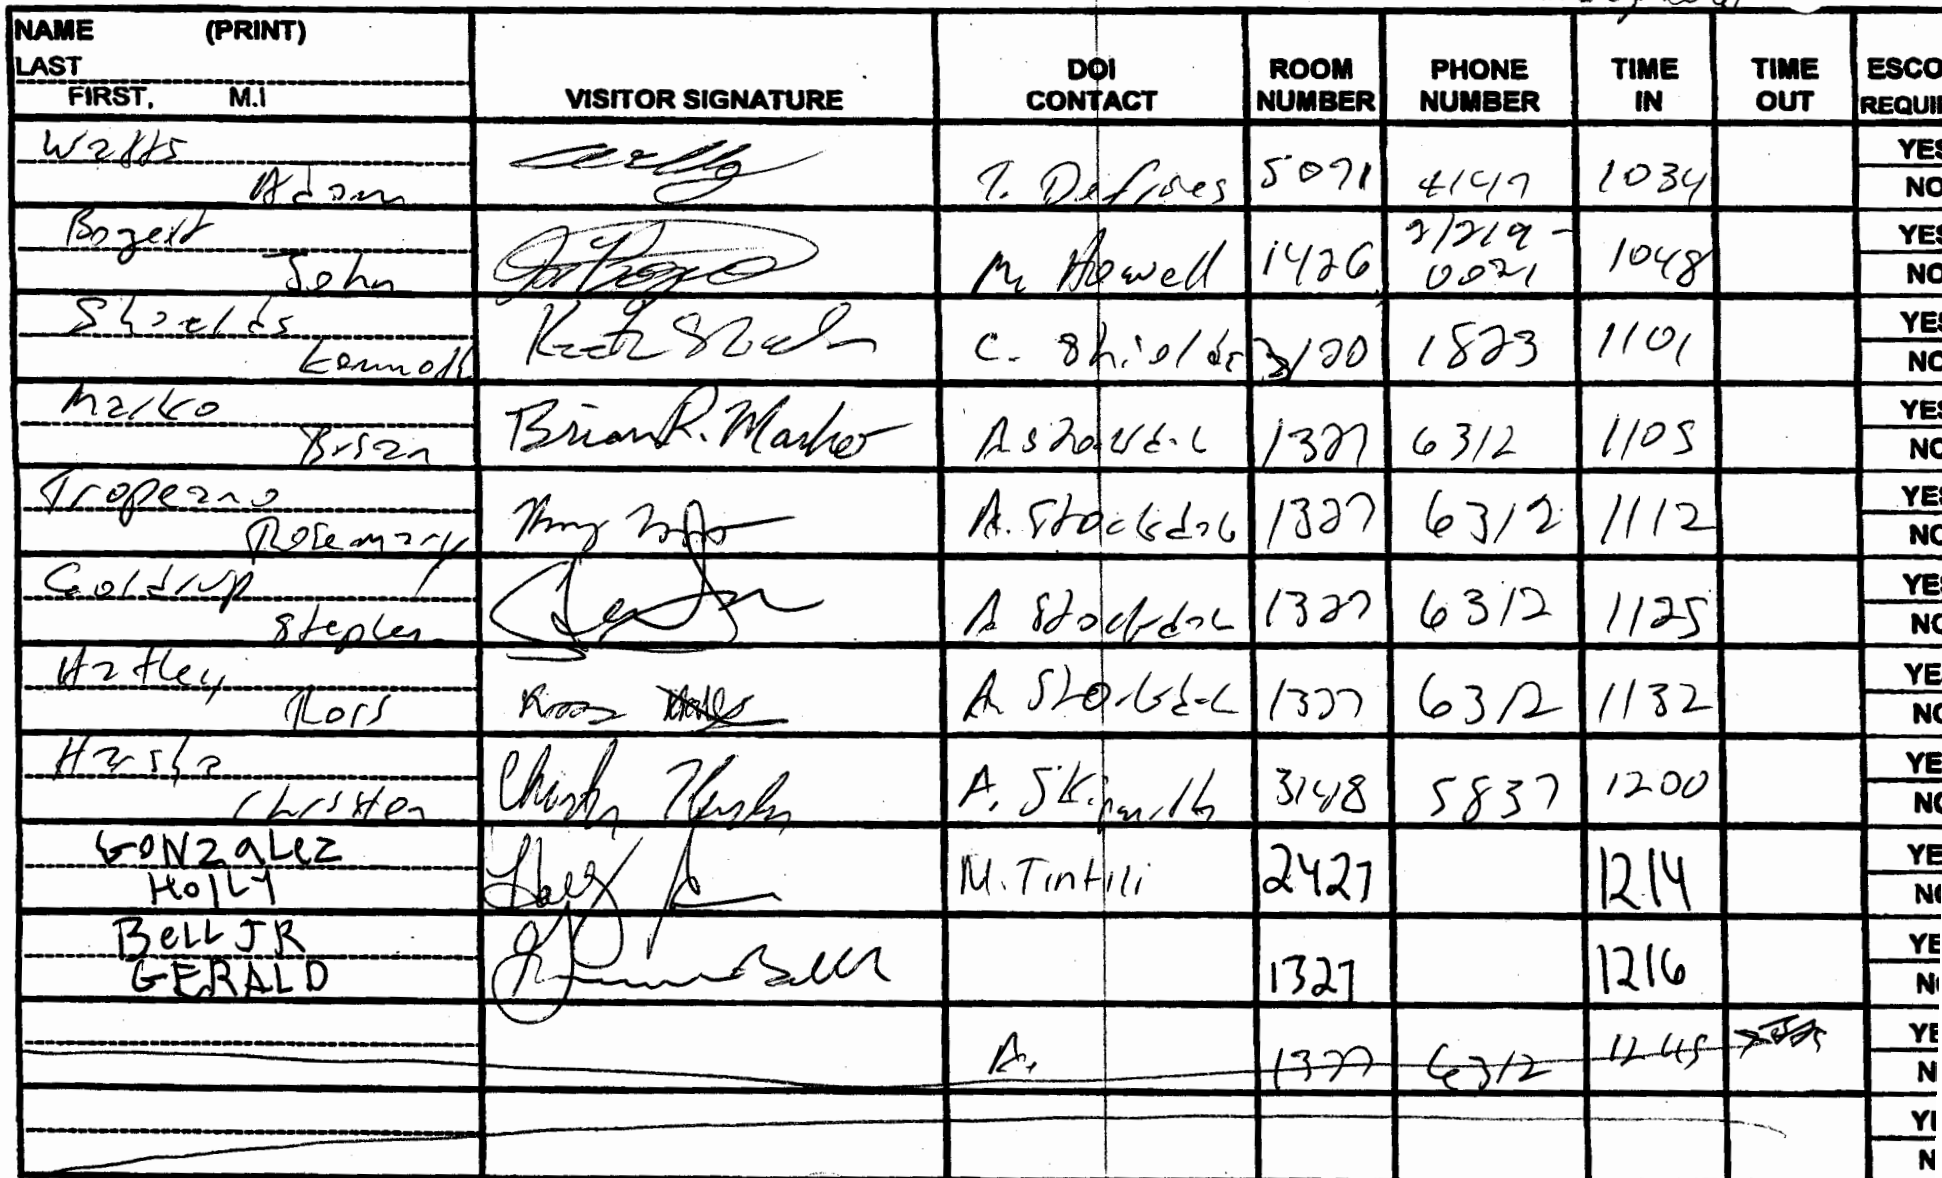 NAME (PRINT)
LAST
FIRST, M.I
VISITOR SIGNATURE
DOI CONTACT
ROOM NUMBER
PHONE NUMBER
TIME IN
TIME OUT
ESCO
REQUIR
Watts
Adam 5071 4147 1034
YES
NO
John M. Howell 1426 0021 1048
YES
NO
Shields
Kenneth C. Shields 3120 1823 1101
YES
NO
Marko
Brian Brian R. Marko 1327 6312 1105
YES
NO
Tropeano
Rosemary A. Stockdal 1327 6312 1112
YES
NO
Goldrup
Stephen A Stockdal 1327 6312 1125
YES
NO
Hatley
Ross A Stockdal 1327 6312 1132
YES
NO
Harsha
Christen 3148 5837 1200
YE
NO
GONZALEZ
HOLLY M. Tintili 2427 1214
YE
NO
BELL JR
GERALD 1327 1216
YE
NO
A. 1327 6312 1245
YE
N
YI
N